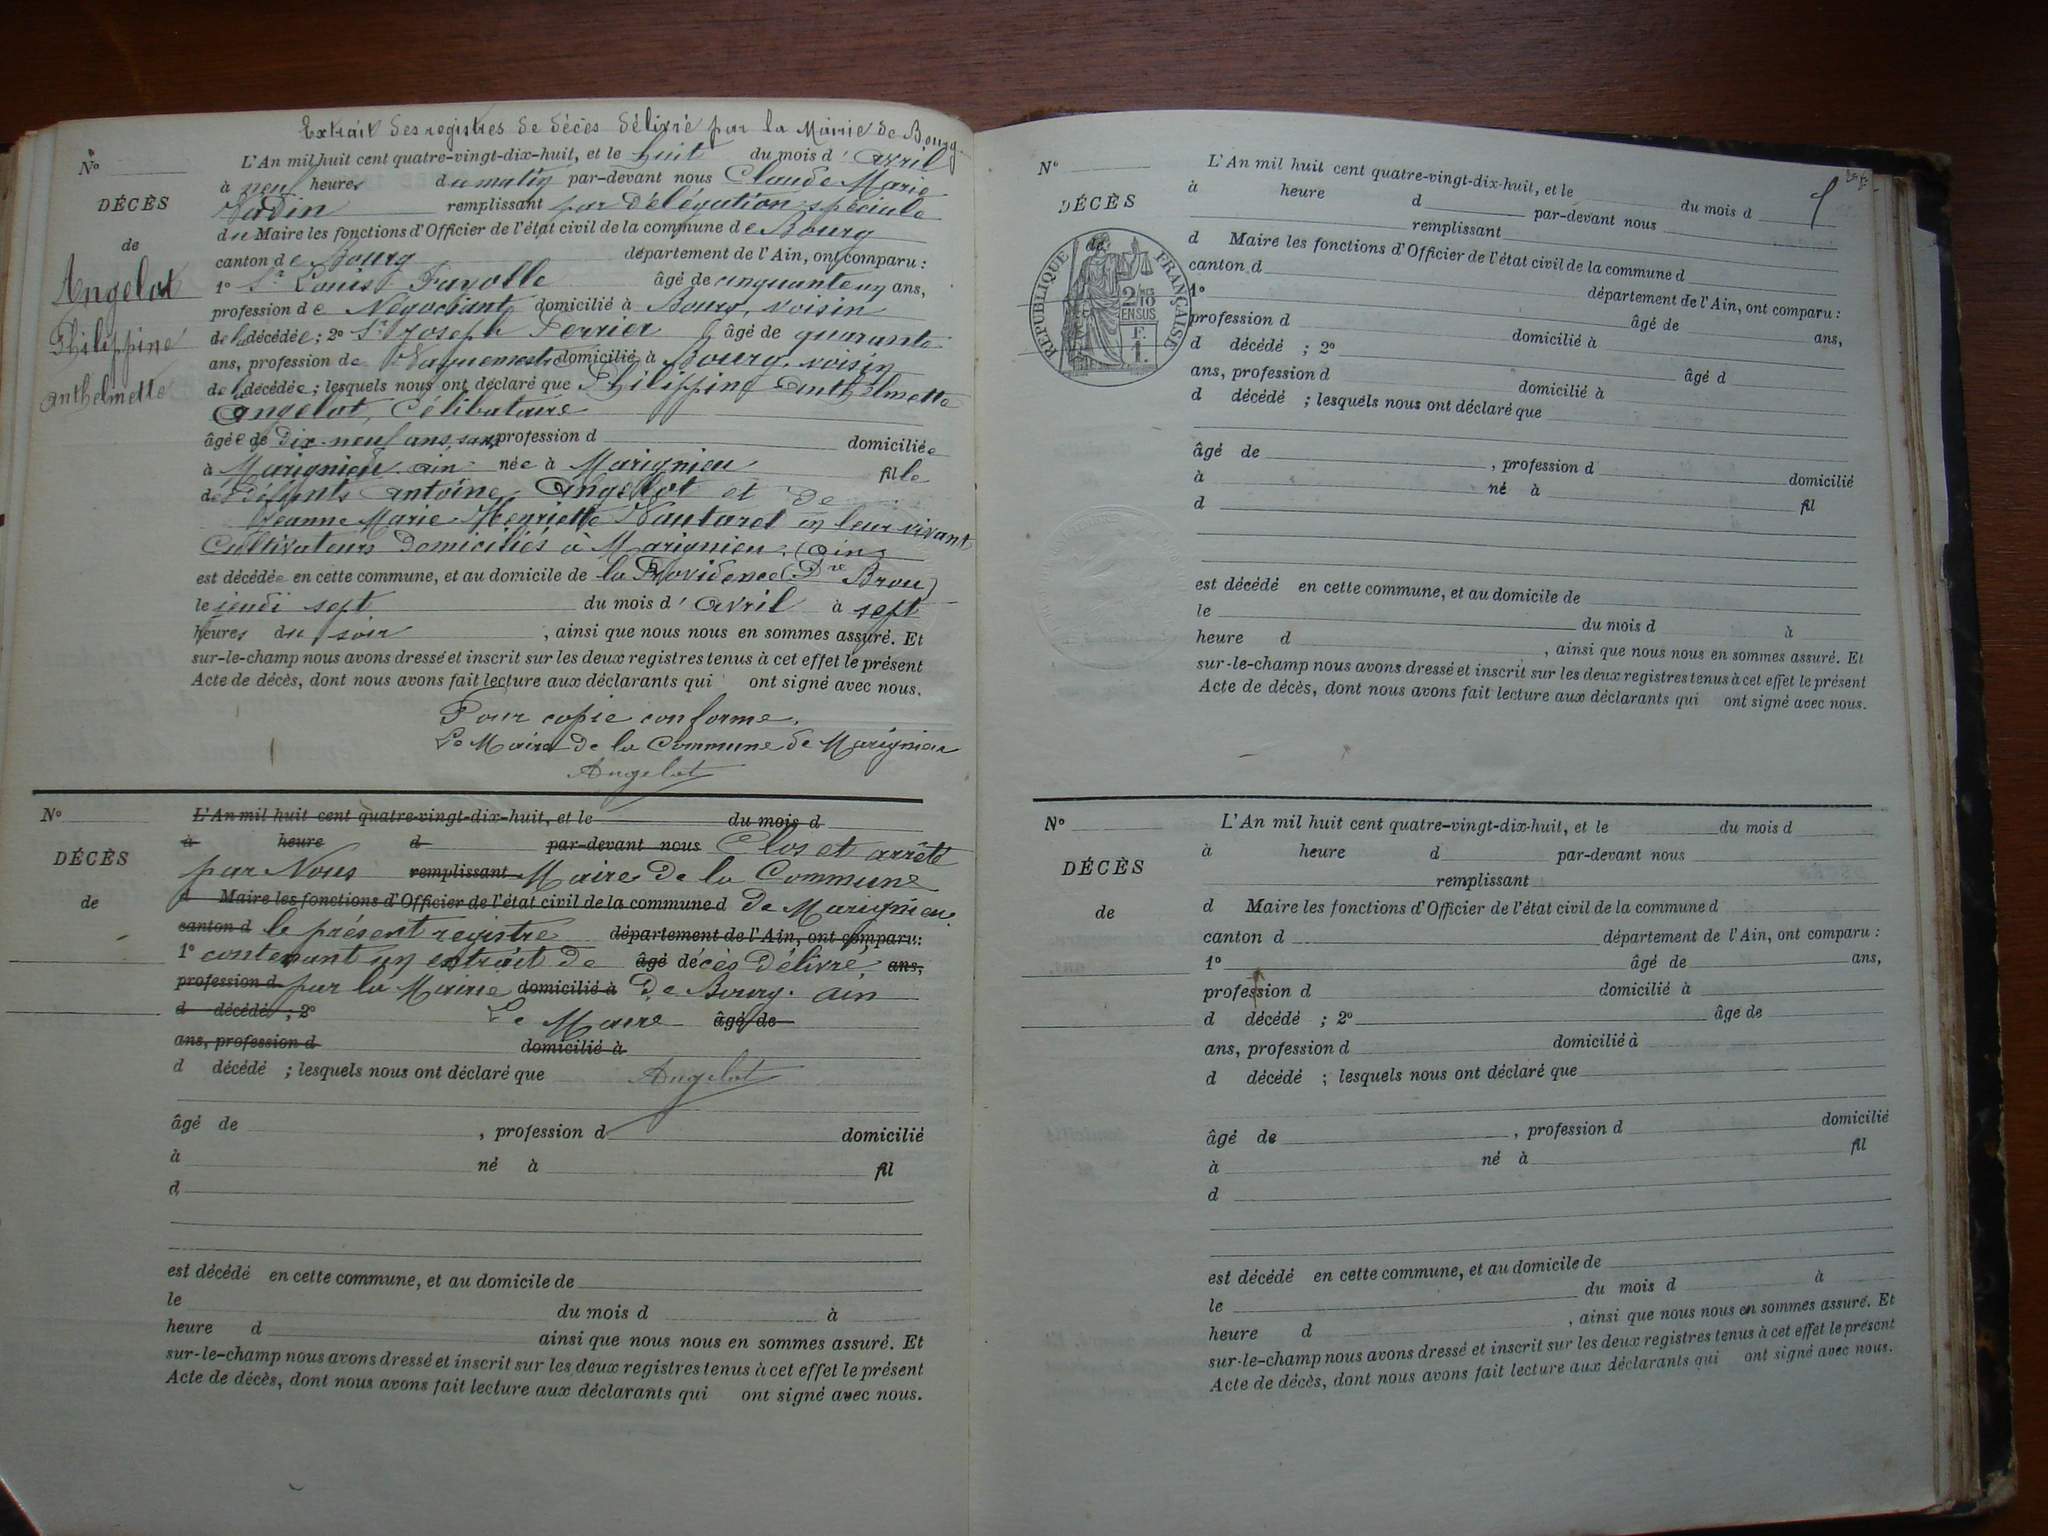 Extrait des registres de décès délivré par la Mairie de Bourg
N°
DÉCÈS
de
Angelot
Philippine
Anthelmette
L'An mil huit cent quatre-vingt-dix-huit, et le huit du mois d'avril
à neuf heures du matin par-devant nous Claude Marie
remplissant par délégation spéciale
du Maire les fonctions d'Officier de l'état civil de la commune de Bourg
canton de Bourg département de l'Ain, ont comparu :
1° Sr Louis Fayolle âgé de cinquante un ans,
profession de Négociant domicilié à Bourg, voisin
de la décédée ; 2° Sr Joseph Perrier âgé de quarante
ans, profession de Vaguemestre domicilié à Bourg, voisin
de la décédée ; lesquels nous ont déclaré que Philippine Anthelmette
Angelot, Célibataire
âgée de dix-neuf ans, sans profession d domiciliée
à Marignieu ain née à Marignieu fille
de défunts Antoine Angelot et de
Jeanne Marie Henriette Vautaret en leur vivant
Cultivateurs domiciliés à Marignieu, (ain)
est décédée en cette commune, et au domicile de la Providence (Dre Brou)
le jeudi sept du mois d'avril à sept
heures du soir, ainsi que nous nous en sommes assuré. Et
sur-le-champ nous avons dressé et inscrit sur les deux registres tenus à cet effet le présent
Acte de décès, dont nous avons fait lecture aux déclarants qui ont signé avec nous.
Pour copie conforme,
Le Maire de la Commune de Marignieu
Angelot
N°
DÉCÈS
de
L'An mil huit cent quatre-vingt-dix-huit, et le du mois d
à heure d par-devant nous Clos et arrêté
par Nous remplissant Maire de la Commune
d Maire les fonctions d'Officier de l'état civil de la commune d de Marignieu
canton d le présent registre département de l'Ain, ont comparu :
1° contenant un extrait de âgé décès délivré ans,
profession d par la Mairie domicilié à de Bourg. ain
d décédé ; 2° Le Maire âgé de
ans, profession d domicilié à
d décédé ; lesquels nous ont déclaré que Angelot
âgé de , profession d domicilié
à né à fil
d
est décédé en cette commune, et au domicile de
le du mois d à
heure d ainsi que nous nous en sommes assuré. Et
sur-le-champ nous avons dressé et inscrit sur les deux registres tenus à cet effet le présent
Acte de décès, dont nous avons fait lecture aux déclarants qui ont signé avec nous.
N°
DÉCÈS
de
RÉPUBLIQUE FRANÇAISE
2/10
EN SUS
F.
1.
L'An mil huit cent quatre-vingt-dix-huit, et le du mois d
à heure d par-devant nous
remplissant
d Maire les fonctions d'Officier de l'état civil de la commune d
canton d département de l'Ain, ont comparu :
1° âgé de ans,
profession d domicilié à
d décédé ; 2° âgé d
ans, profession d domicilié à
d décédé ; lesquels nous ont déclaré que
âgé de , profession d domicilié
à né à fil
d
est décédé en cette commune, et au domicile de
le du mois d à
heure d , ainsi que nous nous en sommes assuré. Et
sur-le-champ nous avons dressé et inscrit sur les deux registres tenus à cet effet le présent
Acte de décès, dont nous avons fait lecture aux déclarants qui ont signé avec nous.
N°
DÉCÈS
de
L'An mil huit cent quatre-vingt-dix-huit, et le du mois d
à heure d par-devant nous
remplissant
d Maire les fonctions d'Officier de l'état civil de la commune d
canton d département de l'Ain, ont comparu :
1° âgé de ans,
profession d domicilié à
d décédé ; 2° âge de
ans, profession d domicilié à
d décédé ; lesquels nous ont déclaré que
âgé de , profession d domicilié
à né à fil
d
est décédé en cette commune, et au domicile de
le du mois d à
heure d , ainsi que nous nous en sommes assuré. Et
sur-le-champ nous avons dressé et inscrit sur les deux registres tenus à cet effet le présent
Acte de décès, dont nous avons fait lecture aux déclarants qui ont signé avec nous.